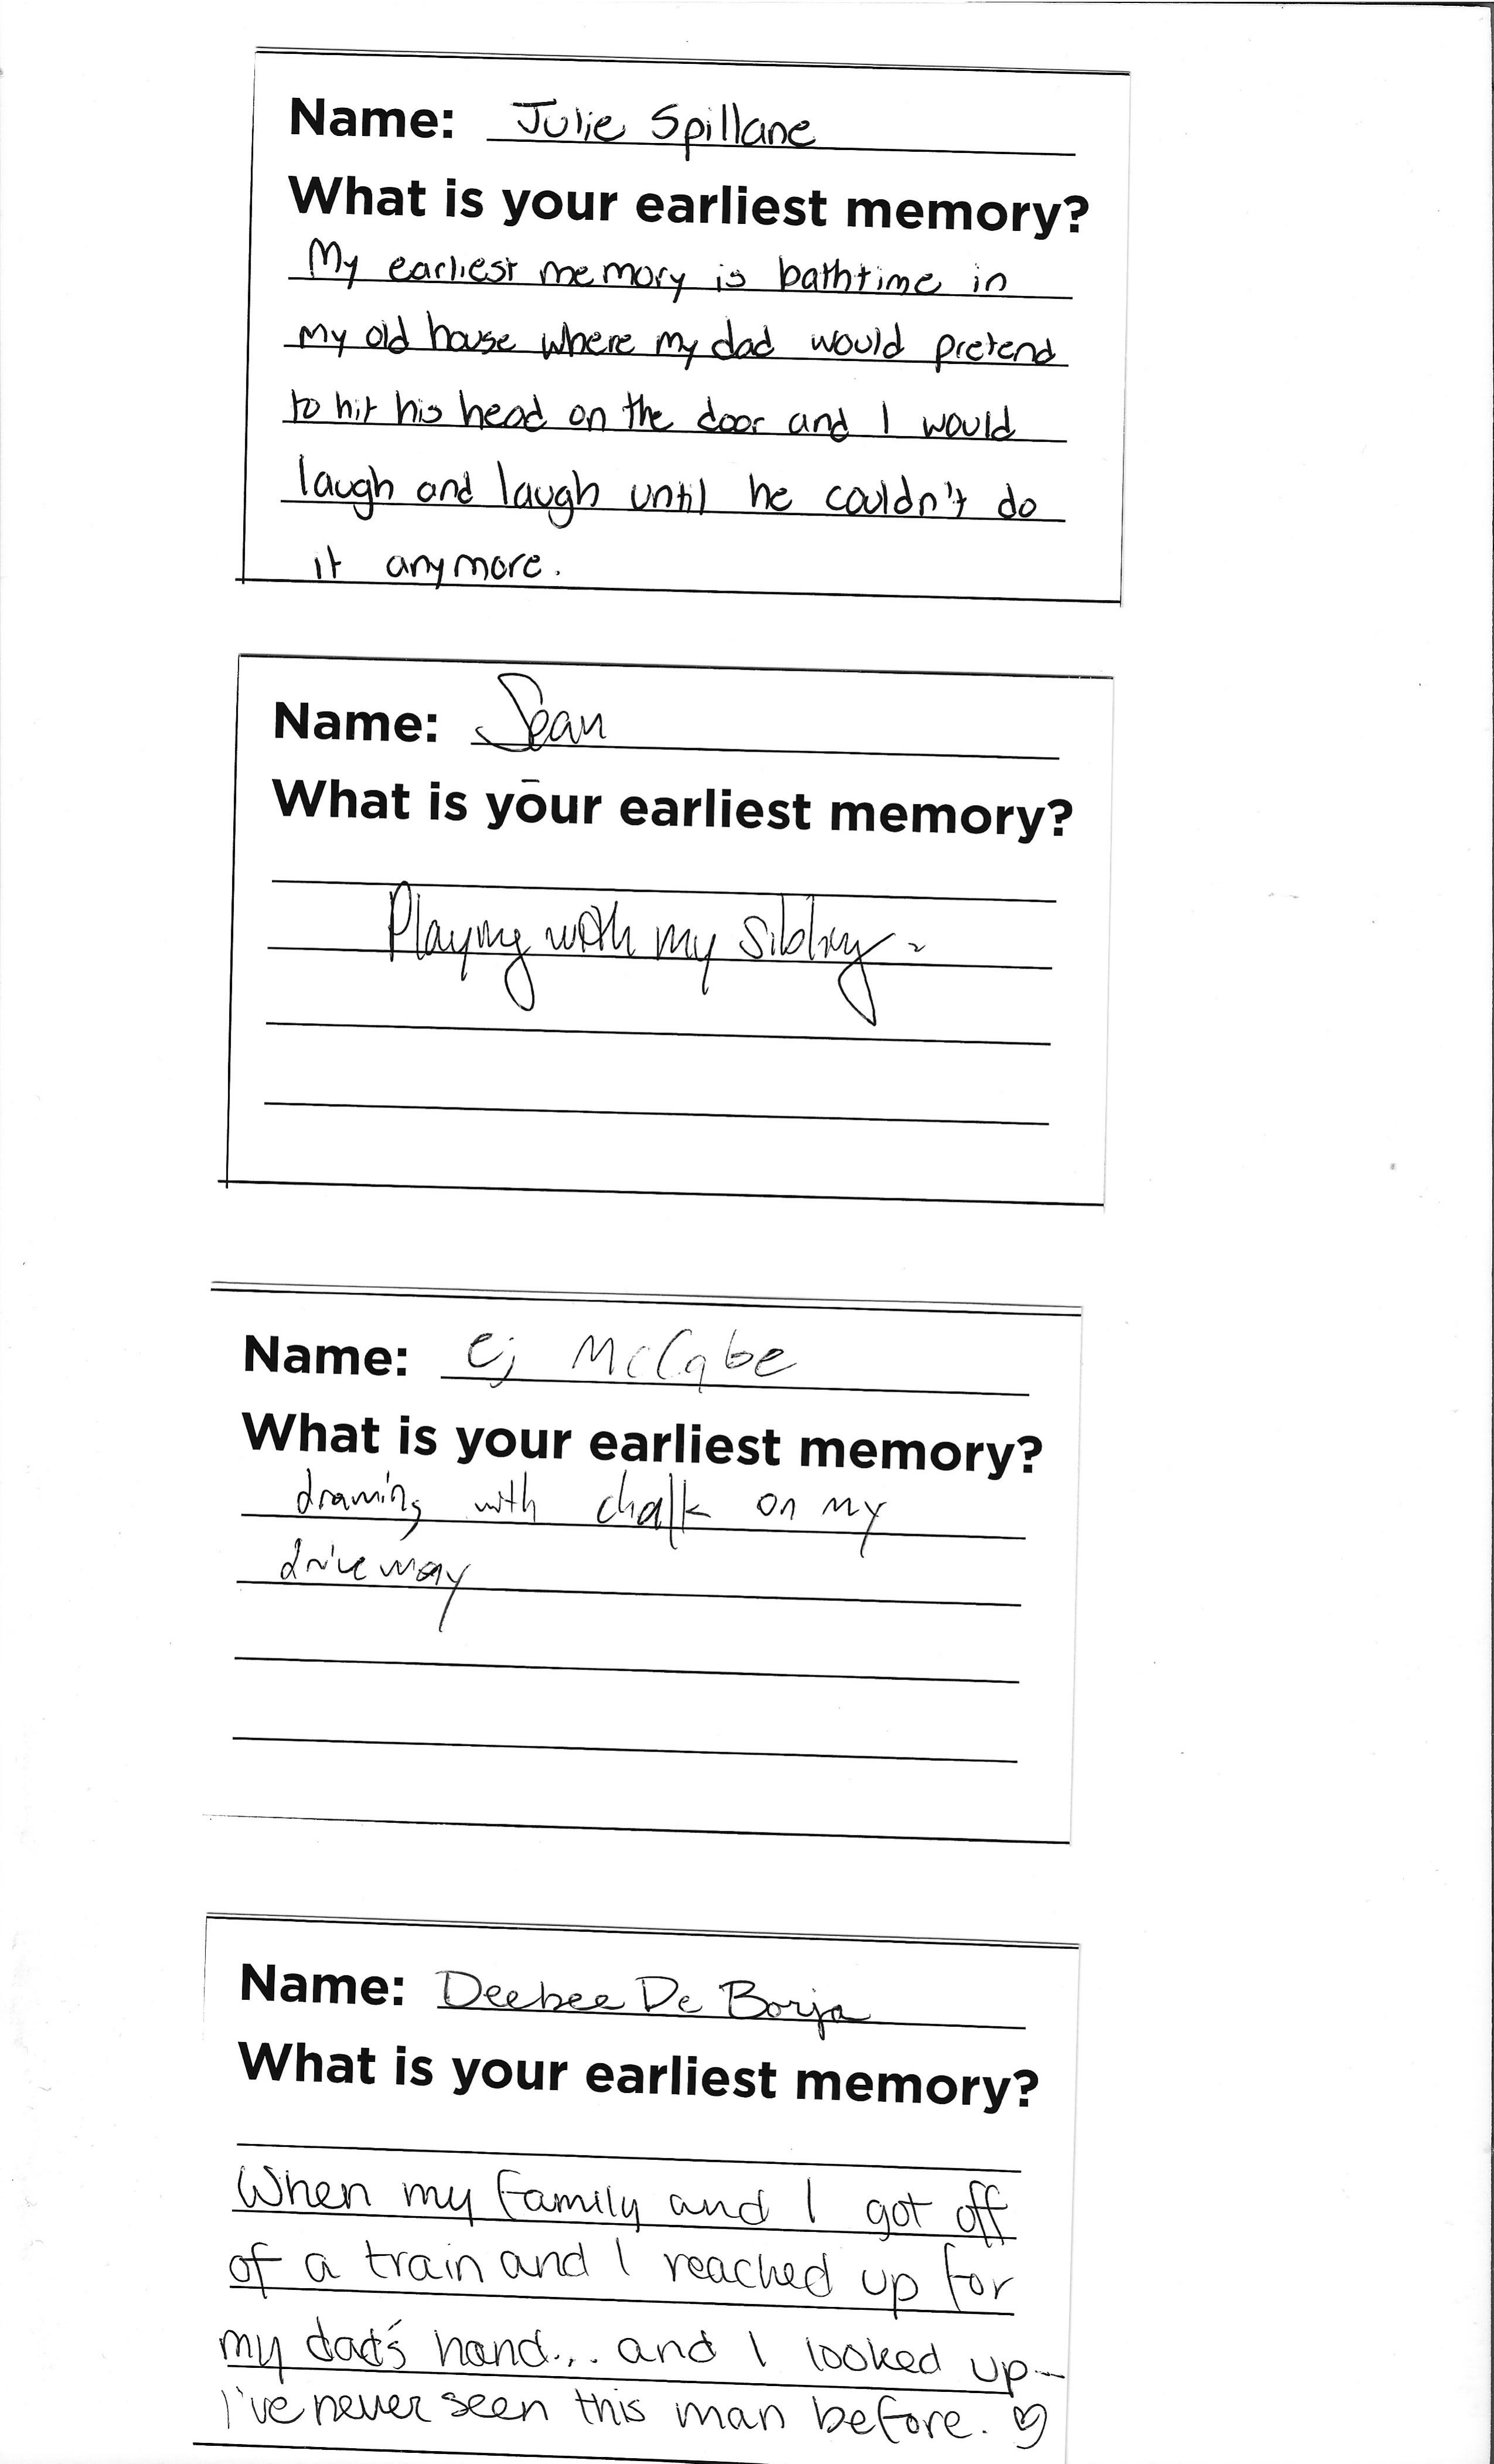 Name: Julie Spillane
What is your earliest memory?
My earliest memory is bathtime in
my old house where my dad would pretend
to hit his head on the door and I would
laugh and laugh until he couldn't do
it anymore.
Name: Sean
What is your earliest memory?
Playing with my sibling
Name: Ej McCabe
What is your earliest memory?
drawing with chalk on my
driveway
Name: Deebee De Borja
What is your earliest memory?
When my family and I got off
of a train and I reached up for
my dad's hand... and I looked up--
I've never seen this man before. ♡